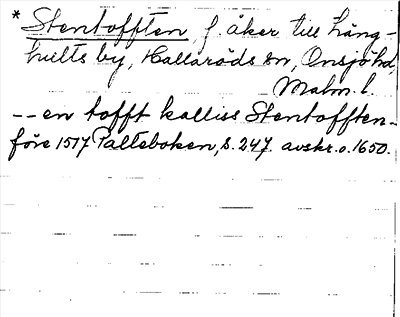 * Stentofften, f. åker till Lång-
hults by, Hallaröds sn, Onsjö hd,
Malm. l.
-- en tofft kalliss Stentofften -
före 1517 Palteboken, s. 247. avskr. o. 1650.